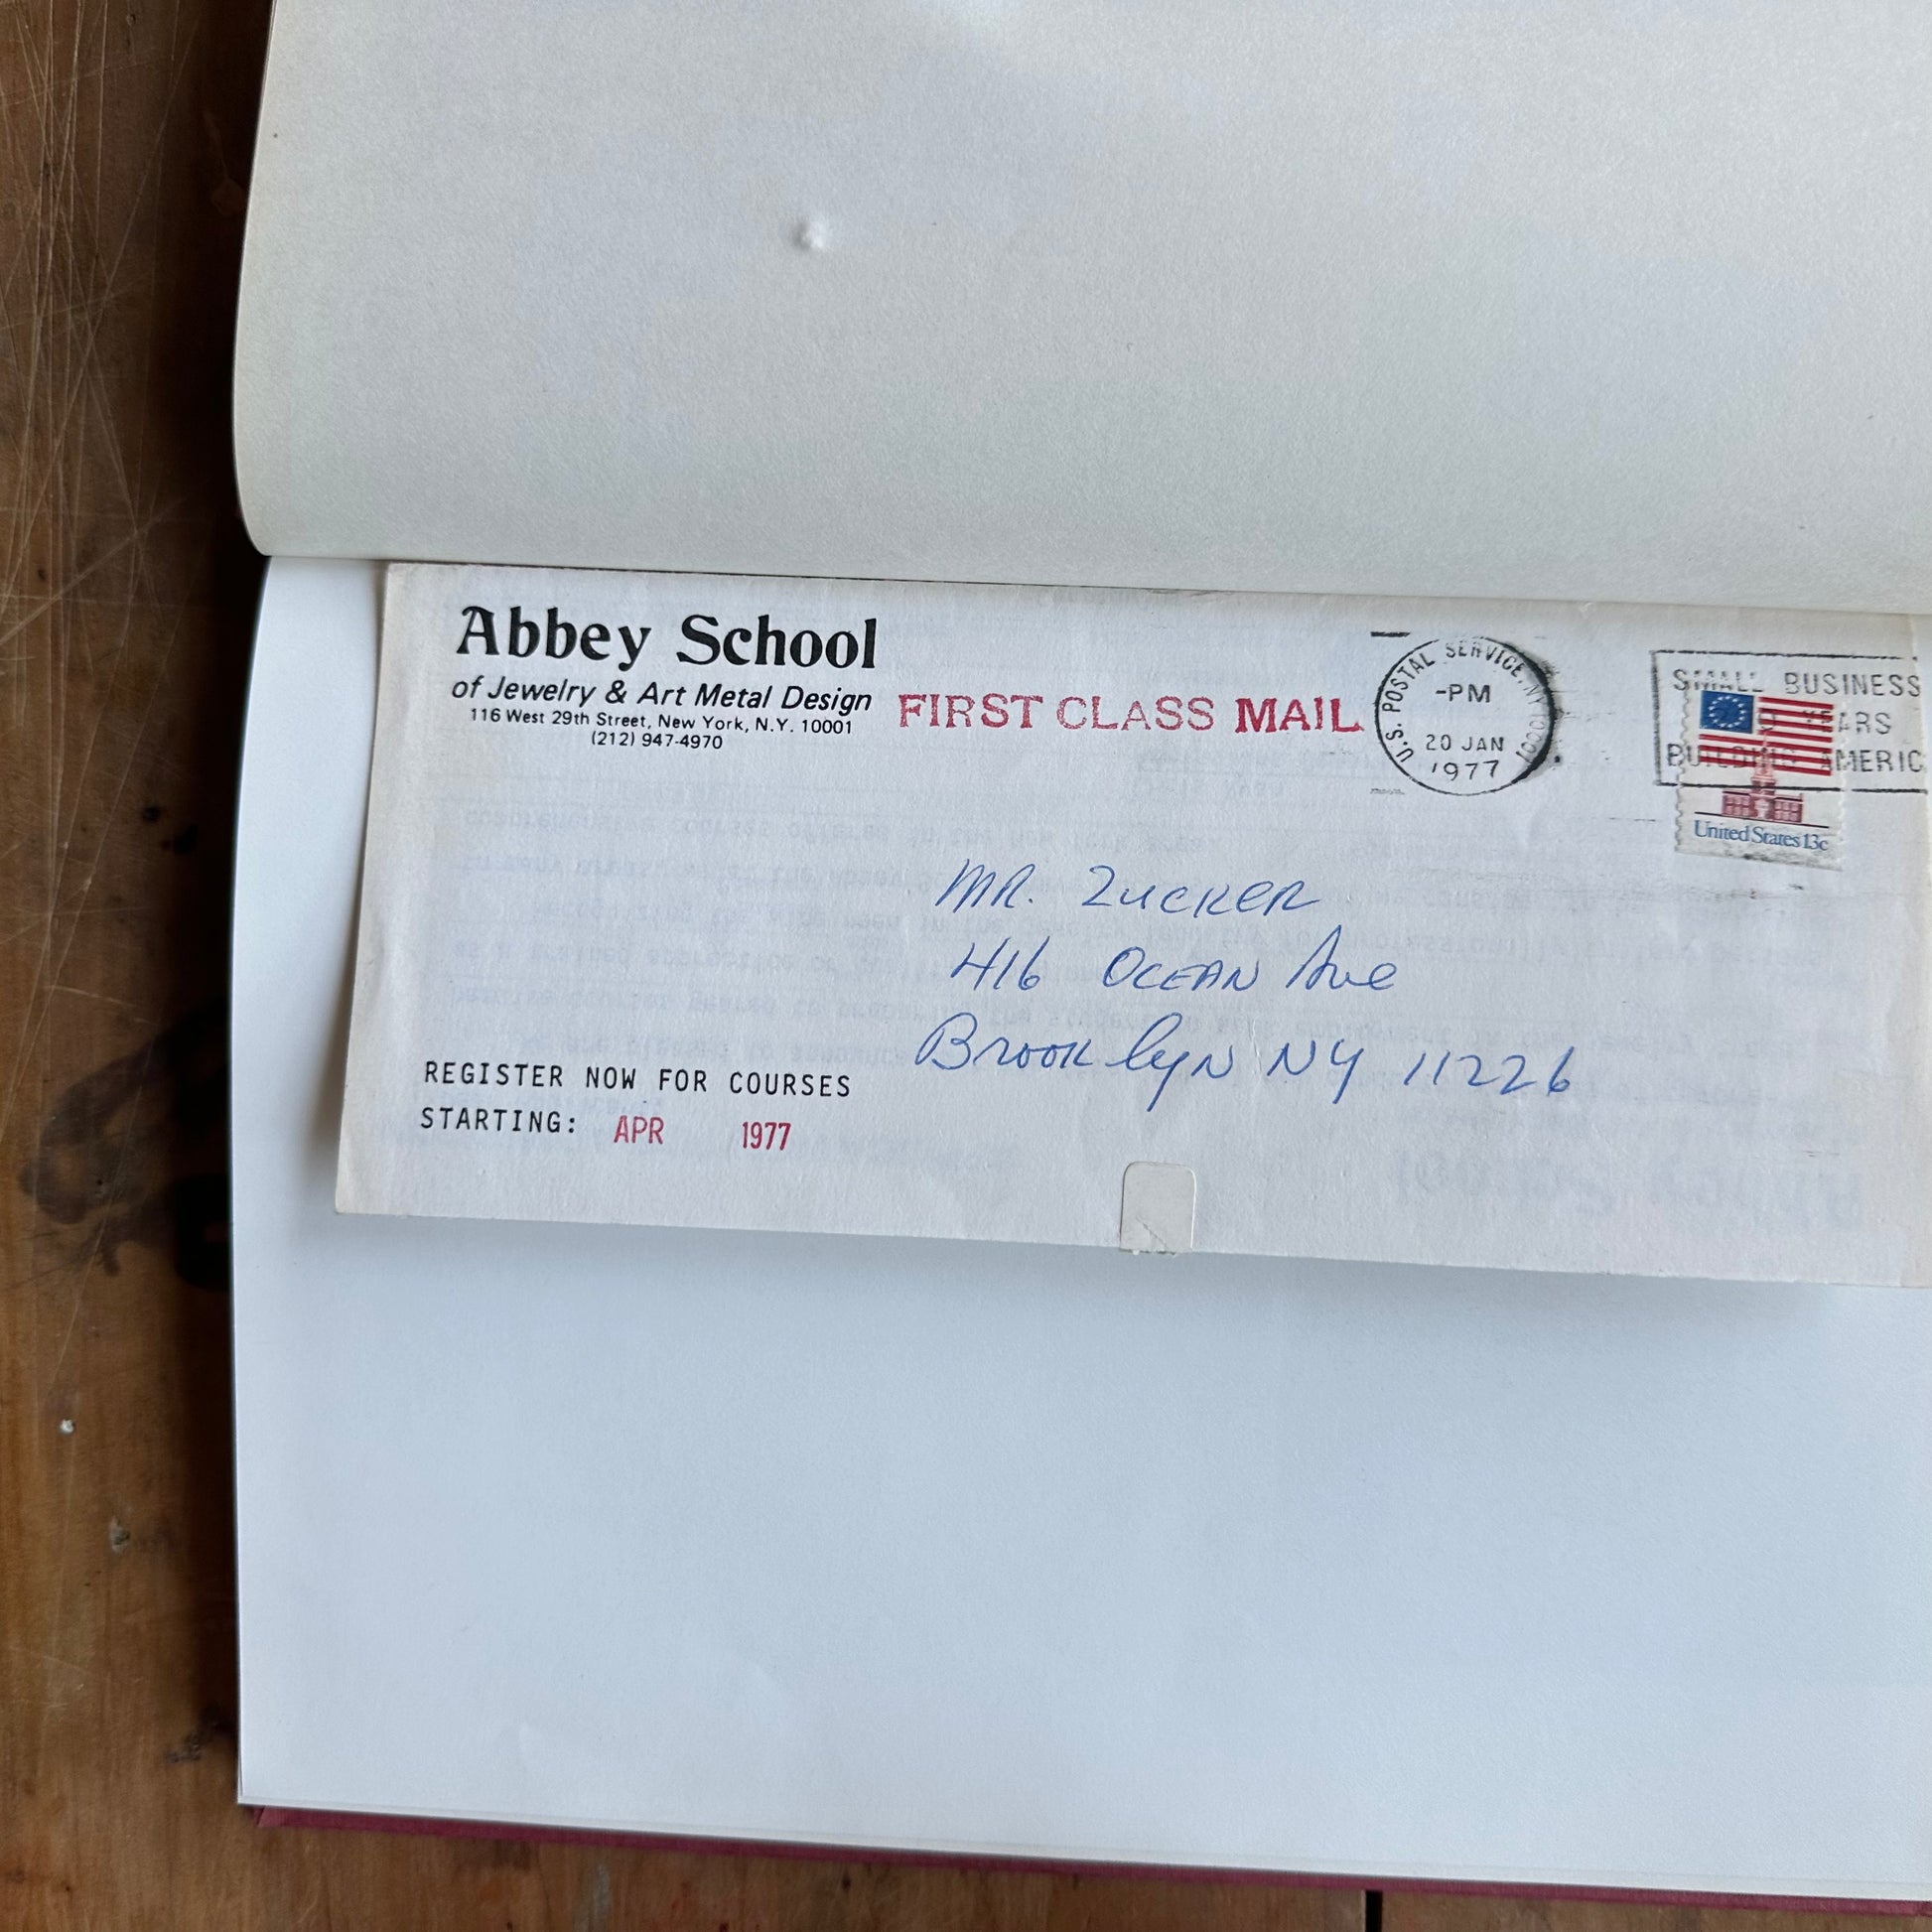 Abbey School
of Jewelry & Art Metal Design
116 West 29th Street, New York, N.Y. 10001
(212) 947-4970
FIRST CLASS MAIL
U.S. POSTAL SERVICE, NY 10001
-PM
20 JAN
1977
SMALL BUSINESS
BUILDING AMERIC
United States 13c
MR. ZUCKER
416 OCEAN Ave
Brooklyn NY 11226
REGISTER NOW FOR COURSES
STARTING: APR 1977